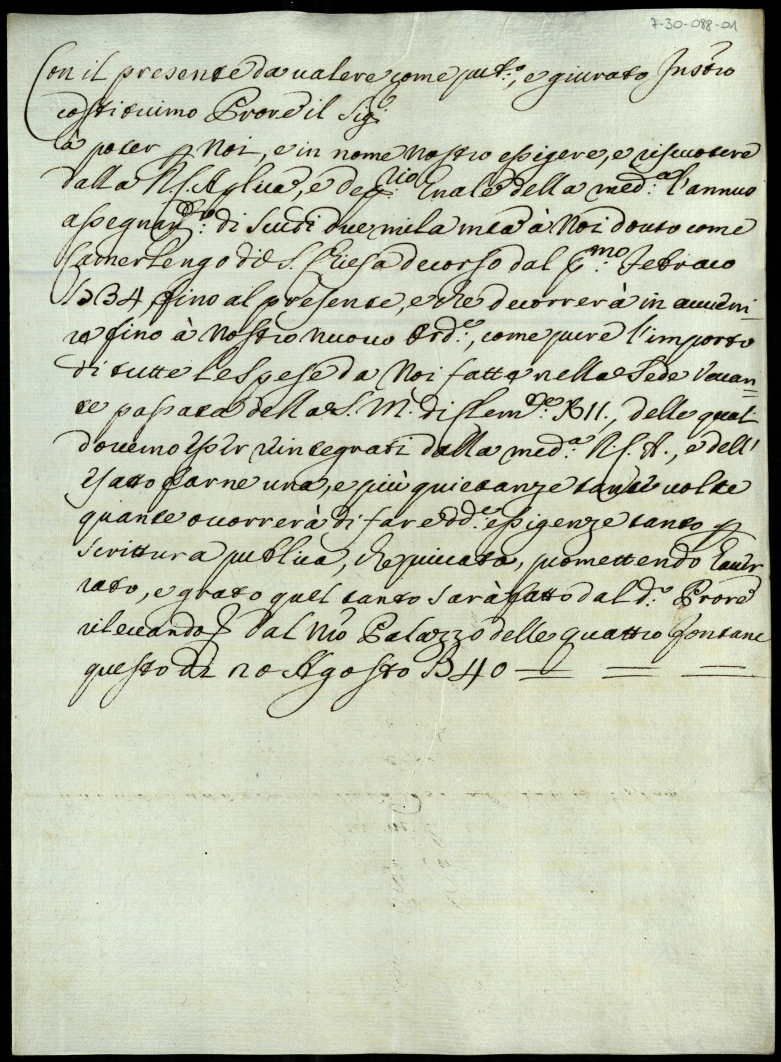 7-30-088-01
Con il presente da ualere come pub.co, e giurato Instro
costituimo Prore il Sig.
à poter p Noi, e in nome Nostro essigere, e riscuotere
dalla R. C. Aplica, e dep.rio Gnale della med.a l'annuo
assegnam.to di scudi due mila m.ta à Noi douto come
Camerlengo di S. Chiesa decorso dal p.mo Febraio
1734, fino al presente, e che decorrerà in auueni=
re fino à Nostro nuouo Ord.e, come pure l'importo
di tutte le spese da Noi fatte nella Sede Vacan=
te passata della S. M. di Clem.te XII., delle quali
douemo esser rintegrati dalla med.a R. C. A., e dell'
esatto farne una, e più quietanze tante uolte
quante occorrerà di fare dd.e essigenze tanto p
scrittura publica, che priuata, promettendo hauer
rato, e grato quel tanto sarà fatto dal d.o Prore
rileuando Dal Nro Palazzo delle quattro fontane
questo dì 20 Agosto 1740